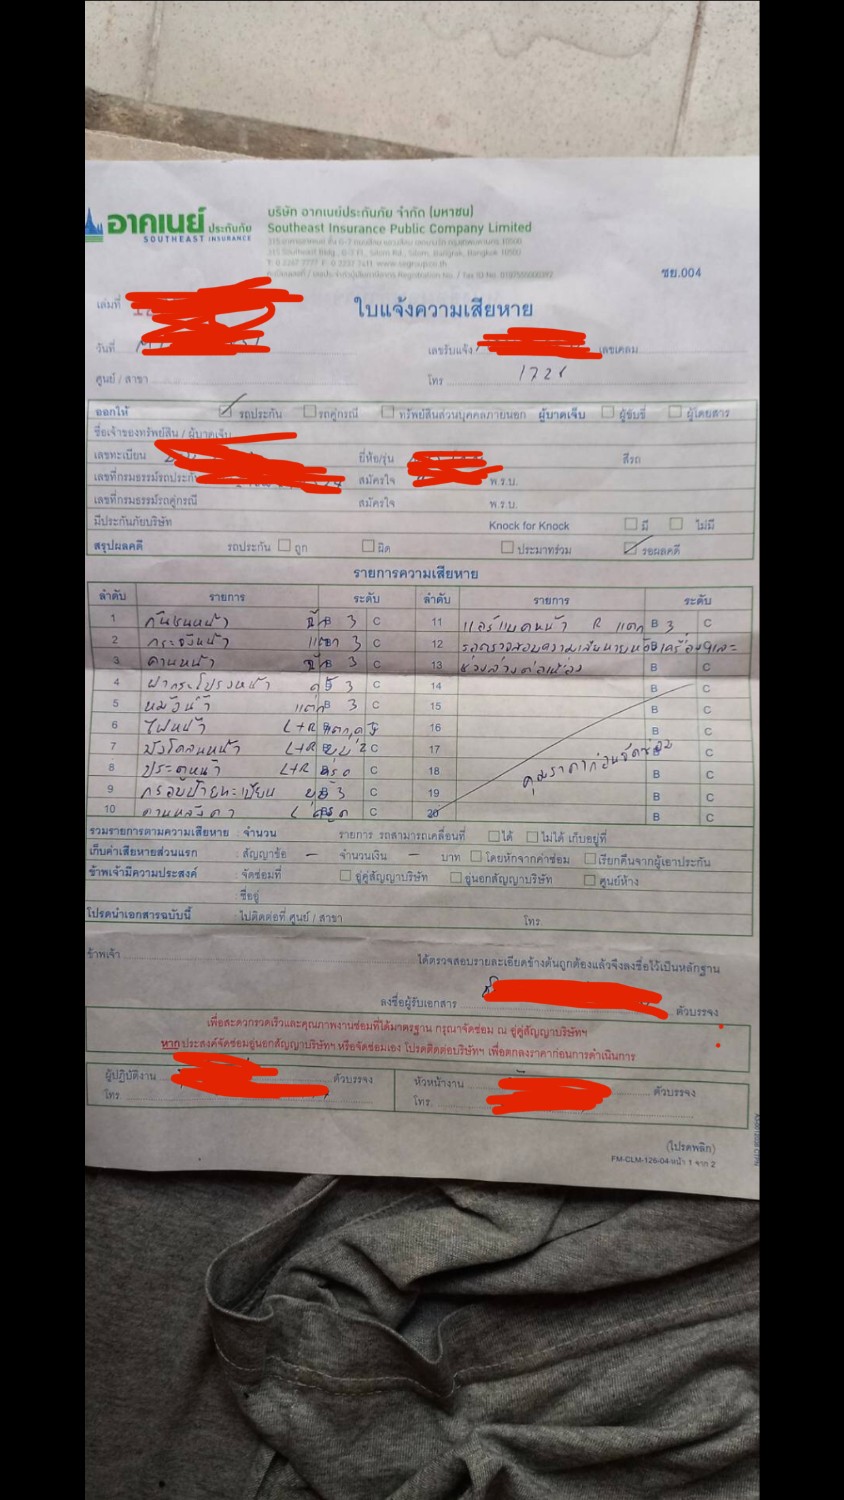 อาคเนย์ ประกันภัย
SOUTHEAST INSURANCE
บริษัท อาคเนย์ประกันภัย จำกัด (มหาชน)
Southeast Insurance Public Company Limited
ชย.004
เล่มที่
ใบแจ้งความเสียหาย
วันที่
เลขรับแจ้ง เลขเคลม
ศูนย์ / สาขา โทร 1726
ออกให้ รถประกัน รถคู่กรณี ทรัพย์สินส่วนบุคคลภายนอก ผู้บาดเจ็บ ผู้ขับขี่ ผู้โดยสาร
ชื่อเจ้าของทรัพย์สิน / ผู้บาดเจ็บ
เลขทะเบียน ยี่ห้อ/รุ่น สีรถ
เลขที่กรมธรรม์รถประกัน สมัครใจ พ.ร.บ.
เลขที่กรมธรรม์รถคู่กรณี สมัครใจ พ.ร.บ.
มีประกันภัยบริษัท Knock for Knock มี ไม่มี
สรุปผลคดี รถประกัน ถูก ผิด ประมาทร่วม รอผลคดี
รายการความเสียหาย
ลำดับ รายการ ระดับ ลำดับ รายการ ระดับ
1 กันชนหน้า B 3 C 11 แอร์แบคหน้า R แตก B 3 C
2 กระจังหน้า แตก 3 C 12 รอตรวจสอบความเสียหายห้องเครื่องและ
3 คานหน้า B 3 C 13 ช่วงล่างต่อเนื่อง B C
4 ฝากระโปรงหน้า 3 C 14 B C
5 หม้อน้ำ แตก B 3 C 15 B C
6 ไฟหน้า L+R แตก C 16 B C
7 บังโคลนหน้า L+R ยุบ 2 C 17 คุมราคาก่อนจัดซ่อม B C
8 ประตูหน้า L+R C 18 B C
9 กรอบป้ายทะเบียน 3 C 19 B C
10 คานหลังคา L C 20 B C
รวมรายการตามความเสียหาย : จำนวน รายการ รถสามารถเคลื่อนที่ ได้ ไม่ได้ เก็บอยู่ที่
เก็บค่าเสียหายส่วนแรก : สัญญาข้อ - จำนวนเงิน - บาท โดยหักจากค่าซ่อม เรียกคืนจากผู้เอาประกัน
ข้าพเจ้ามีความประสงค์ : จัดซ่อมที่ อู่คู่สัญญาบริษัท อู่นอกสัญญาบริษัท ศูนย์ห้าง
ชื่ออู่
โปรดนำเอกสารฉบับนี้ : ไปติดต่อที่ ศูนย์ / สาขา โทร.
ข้าพเจ้า ได้ตรวจสอบรายละเอียดข้างต้นถูกต้องแล้วจึงลงชื่อไว้เป็นหลักฐาน
ลงชื่อผู้รับเอกสาร ตัวบรรจง
เพื่อสะดวกรวดเร็วและคุณภาพงานซ่อมที่ได้มาตรฐาน กรุณาจัดซ่อม ณ อู่คู่สัญญาบริษัทฯ
หากประสงค์จัดซ่อมอู่นอกสัญญาบริษัทฯ หรือจัดซ่อมเอง โปรดติดต่อบริษัทฯ เพื่อตกลงราคาก่อนการดำเนินการ
ผู้ปฏิบัติงาน ตัวบรรจง หัวหน้างาน ตัวบรรจง
โทร. โทร.
(โปรดพลิก)
FM-CLM-126-04-หน้า 1 จาก 2